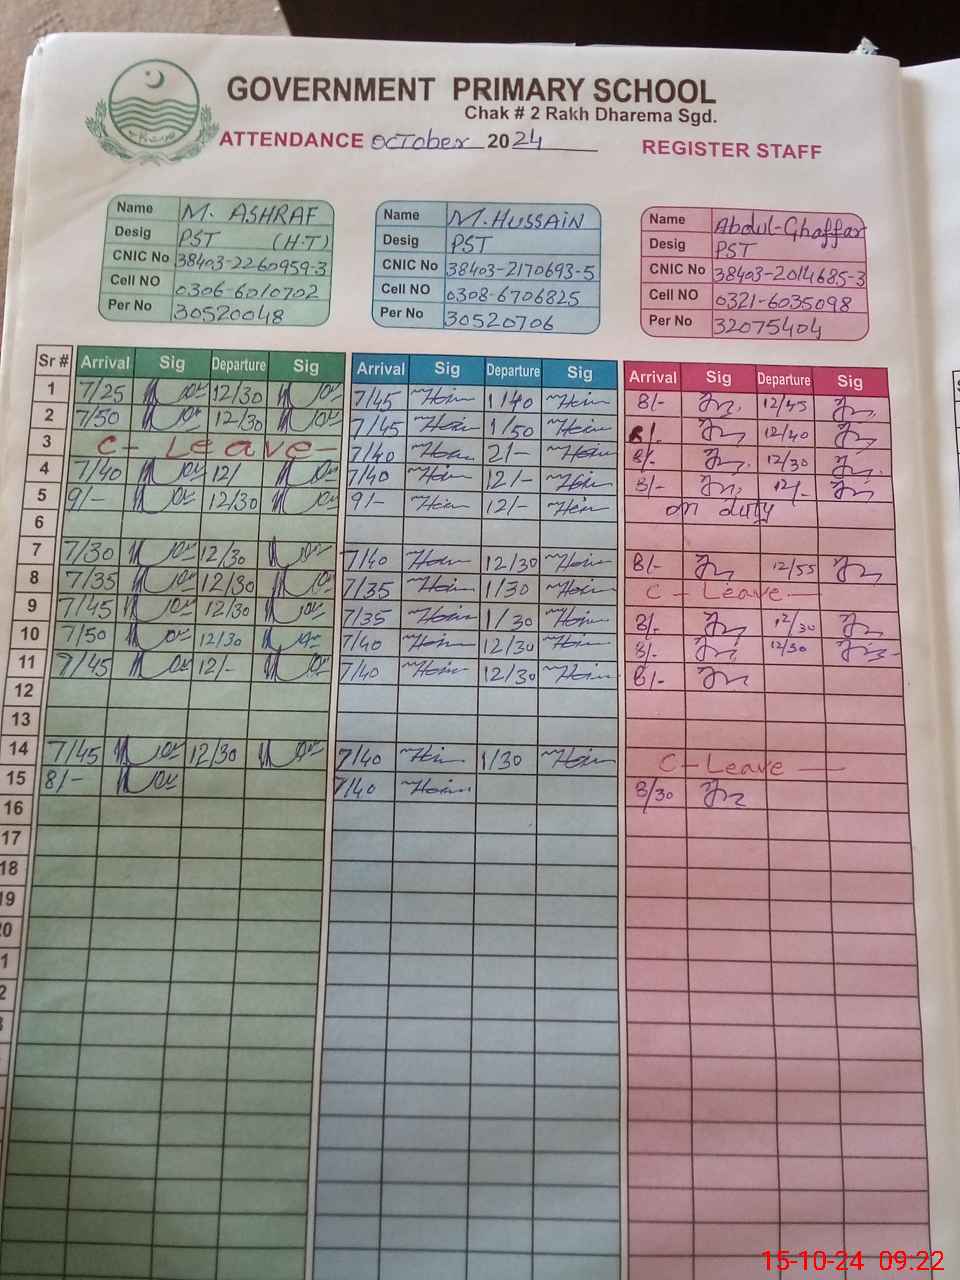 GOVERNMENT PRIMARY SCHOOL
Chak # 2 Rakh Dharema Sgd.
ATTENDANCE OCTober 2024 REGISTER STAFF
Name M. ASHRAF
Desig PST (H.T)
CNIC No 38403-2260959-3
Cell NO 0306-6010702
Per No 30520048
Name M.HUSSAIN
Desig PST
CNIC No 38403-2170693-5
Cell NO 0308-6706825
Per No 30520706
Name Abdul-Ghaffar
Desig PST
CNIC No 38403-2014685-3
Cell NO 0321-6035098
Per No 32075404
Sr # Arrival Sig Departure Sig Arrival Sig Departure Sig Arrival Sig Departure Sig
1 7/25 12/30 7/45 1/40 8/- 12/45
2 7/50 12/30 7/45 1/50 8/- 12/40
3 C-Leave- 7/40 2/- 8/- 12/30
4 7/40 12/ 7/40 12/- 8/- 12/-
5 9/- 12/30 9/- 12/- on duty
6
7 7/30 12/30 7/40 12/30 8/- 12/55
8 7/35 12/30 7/35 1/30 C-Leave-
9 7/45 12/30 7/35 1/30 8/- 12/30
10 7/50 12/30 7/40 12/30 8/- 12/50
11 7/45 12/- 7/40 12/30 8/-
12
13
14 7/45 12/30 7/40 1/30 C-Leave-
15 8/- 7/40 8/30
16
17
18
19
20
1
2
15-10-24 09:22